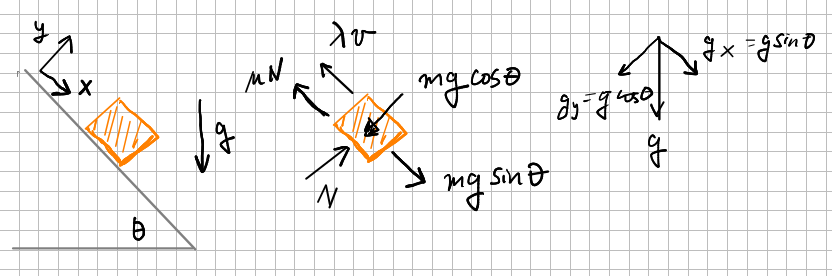 y
x
g
θ
λv
μN
mg cosθ
N
mg sinθ
gx = g sinθ
gy = g cosθ
g